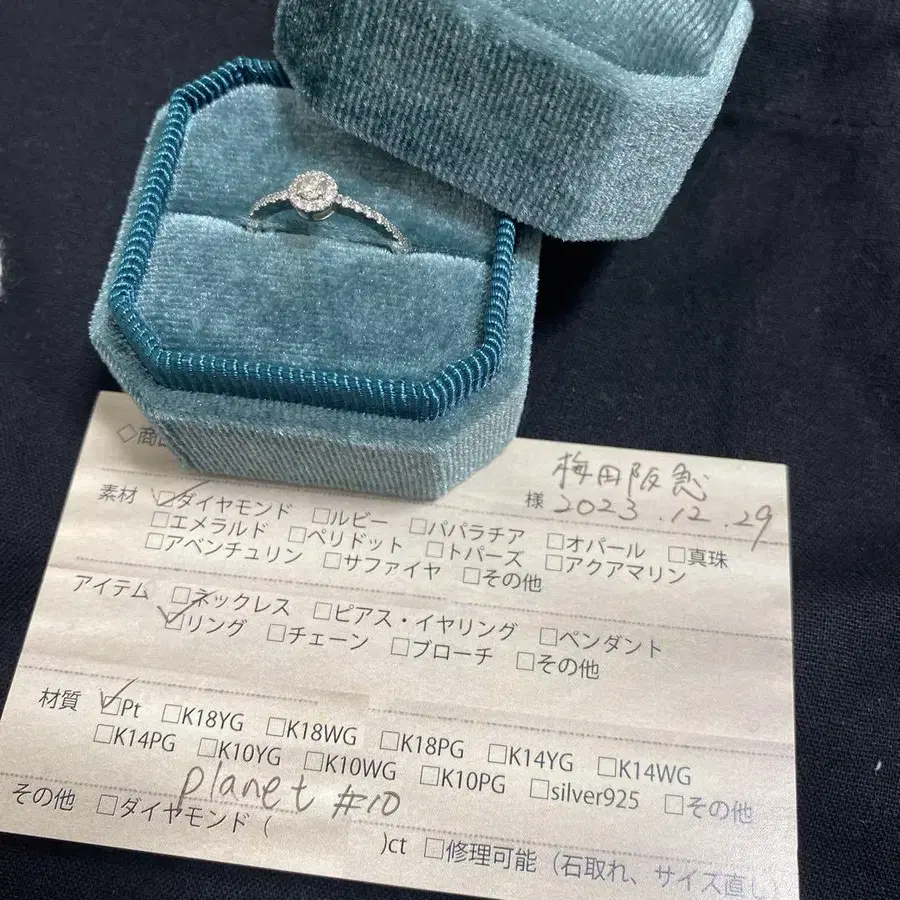 梅田阪急
◇商
様 2023.12.29
素材 ☑ダイヤモンド □ルビー □パパラチア □オパール □真珠
□エメラルド □ペリドット □トパーズ □アクアマリン
□アベンチュリン □サファイヤ □その他
アイテム □ネックレス □ピアス・イヤリング □ペンダント
☑リング □チェーン □ブローチ □その他
材質 ☑Pt □K18YG □K18WG □K18PG □K14YG □K14WG
□K14PG □K10YG □K10WG □K10PG □silver925 □その他
planet #10
その他 □ダイヤモンド ( )ct □修理可能（石取れ、サイズ直し